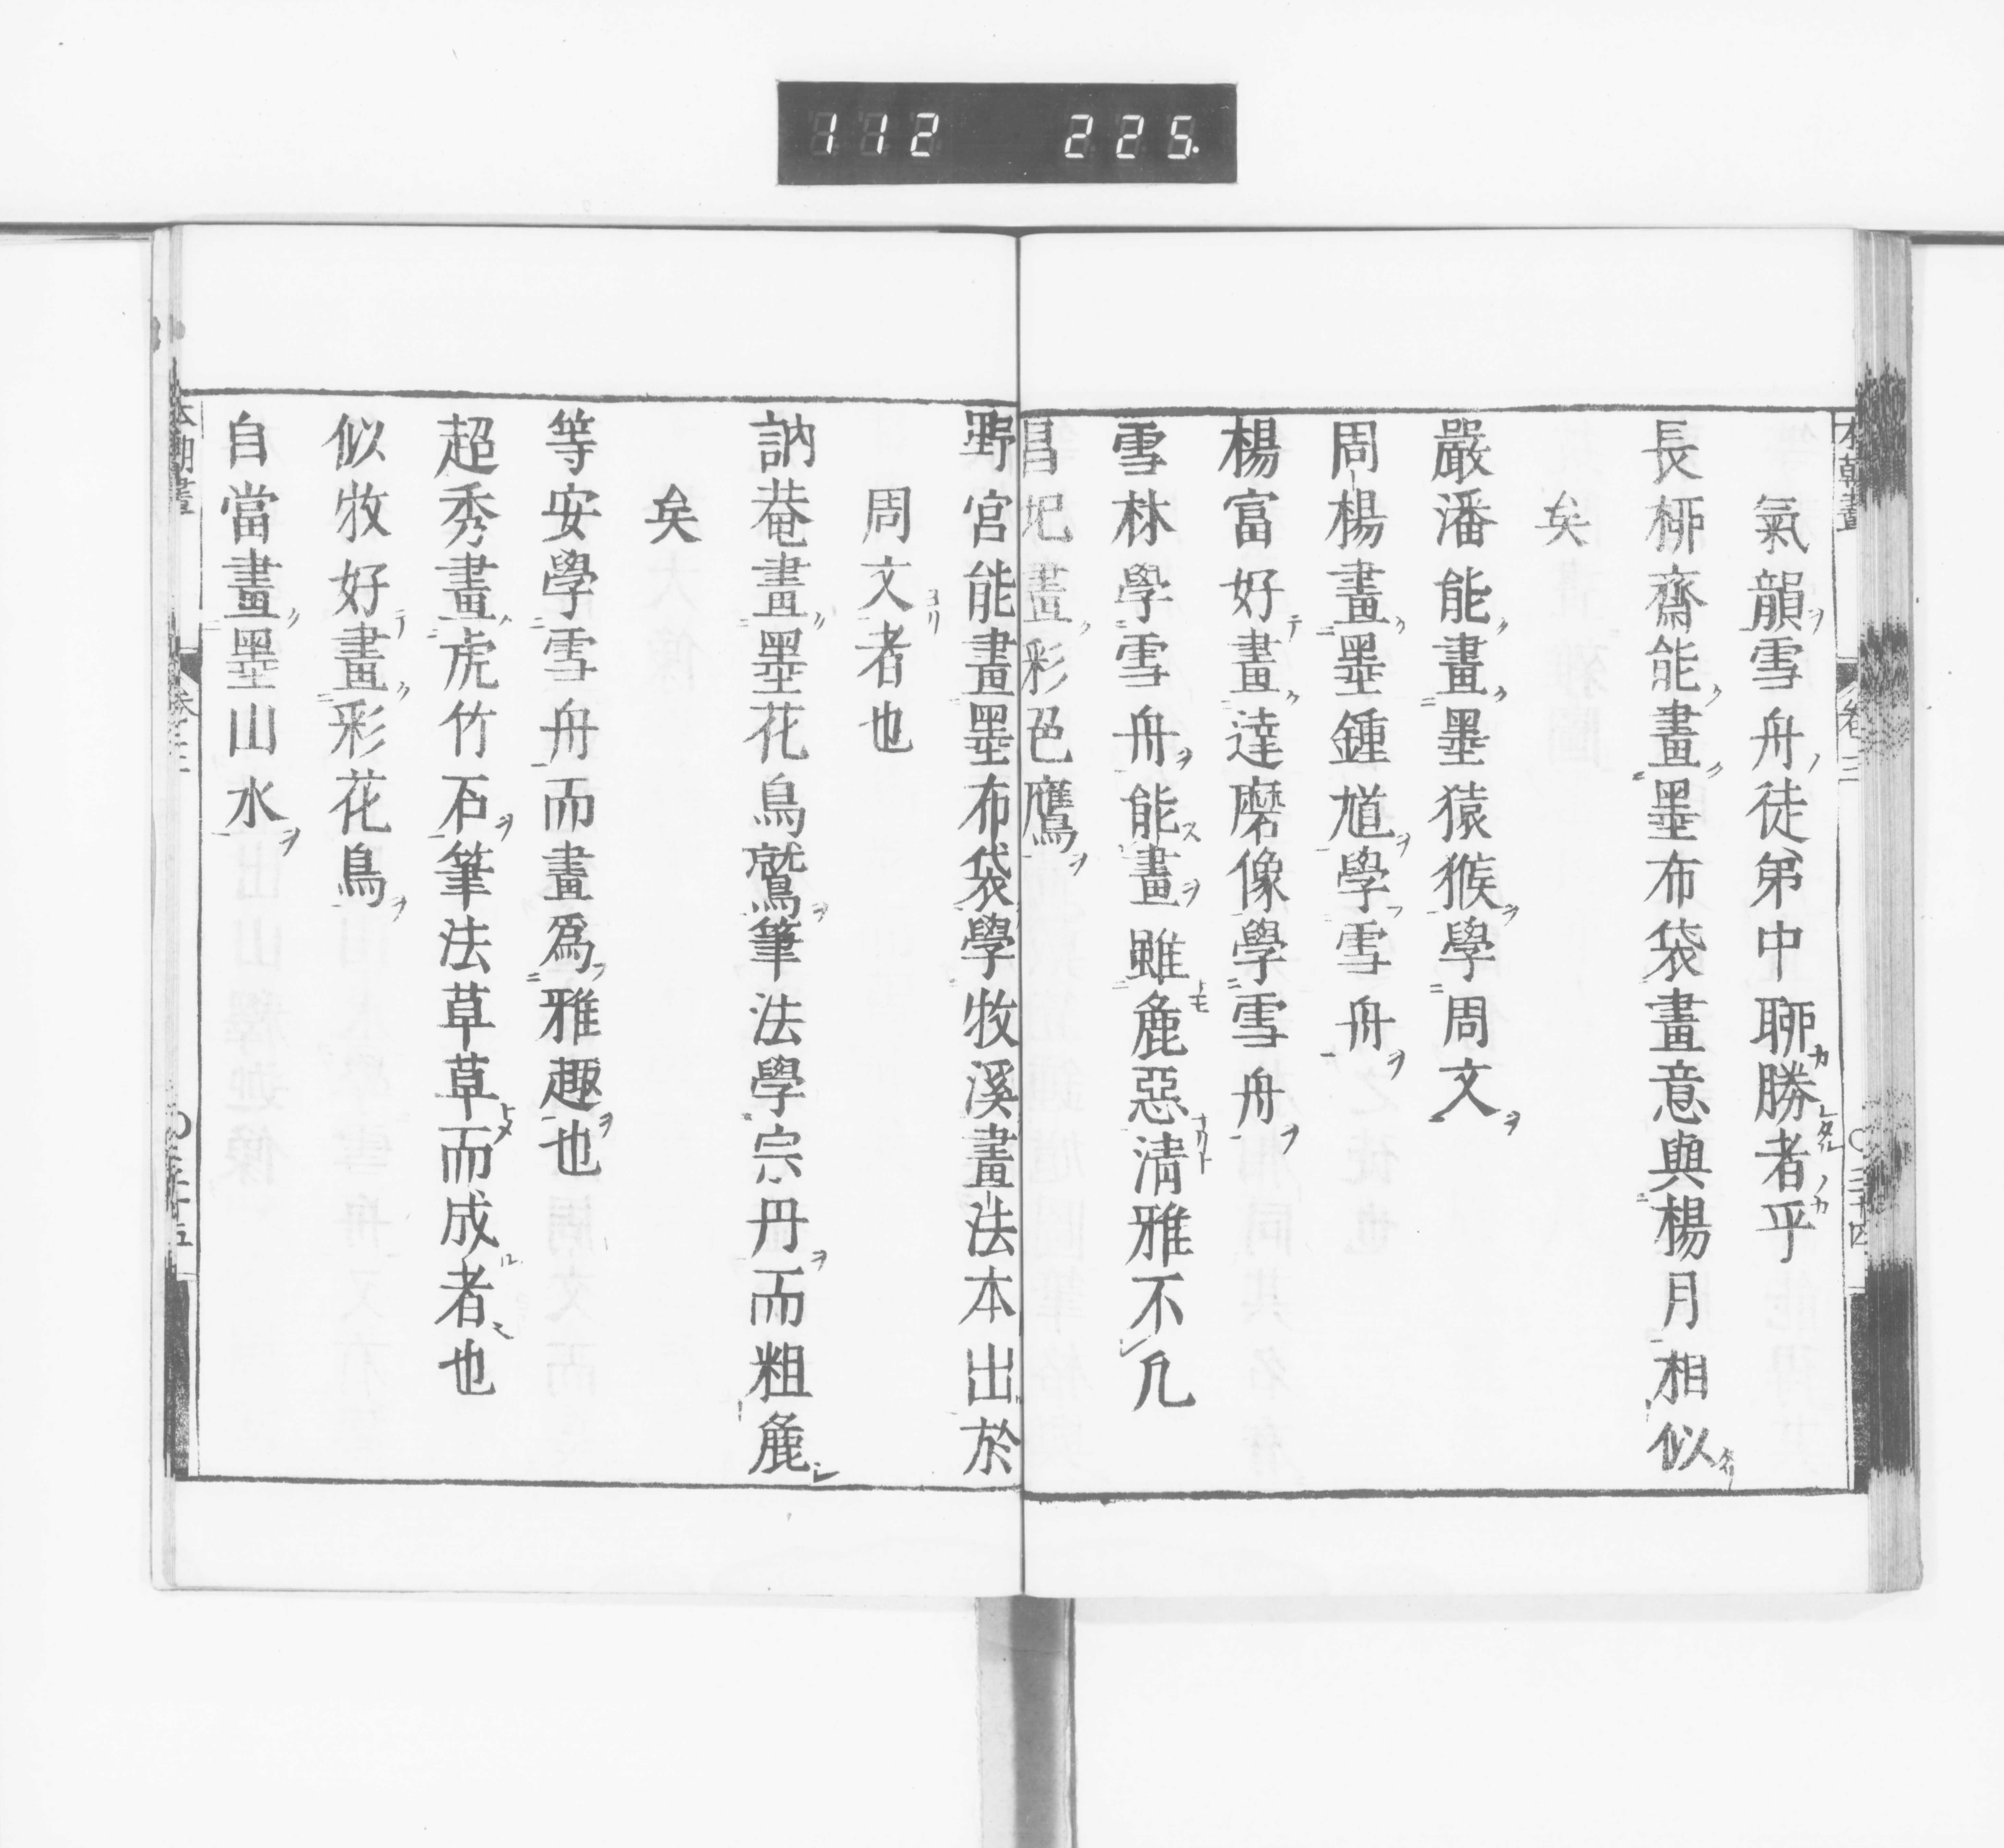 112 225.
本朝畫 卷三 〇三十四
氣韻雪舟徒弟中聊勝者乎
長柳齋能畫墨布袋畫意與楊月相似
矣
嚴潘能畫墨猿猴學周文
周楊畫墨鍾馗學雪舟
楊富好畫達磨像學雪舟
雪林學雪舟能畫雖麁惡淸雅不凡
昌圯畫彩色鷹
野宮能畫墨布袋學牧溪畫法本出於
周文者也
訥菴畫墨花鳥鷲筆法學宗丹而粗麁
矣
等安學雪舟而畫爲雅趣也
超秀畫虎竹石筆法草草而成者也
似牧好畫彩花鳥
自當畫墨山水
本朝畫 卷三 〇三十五